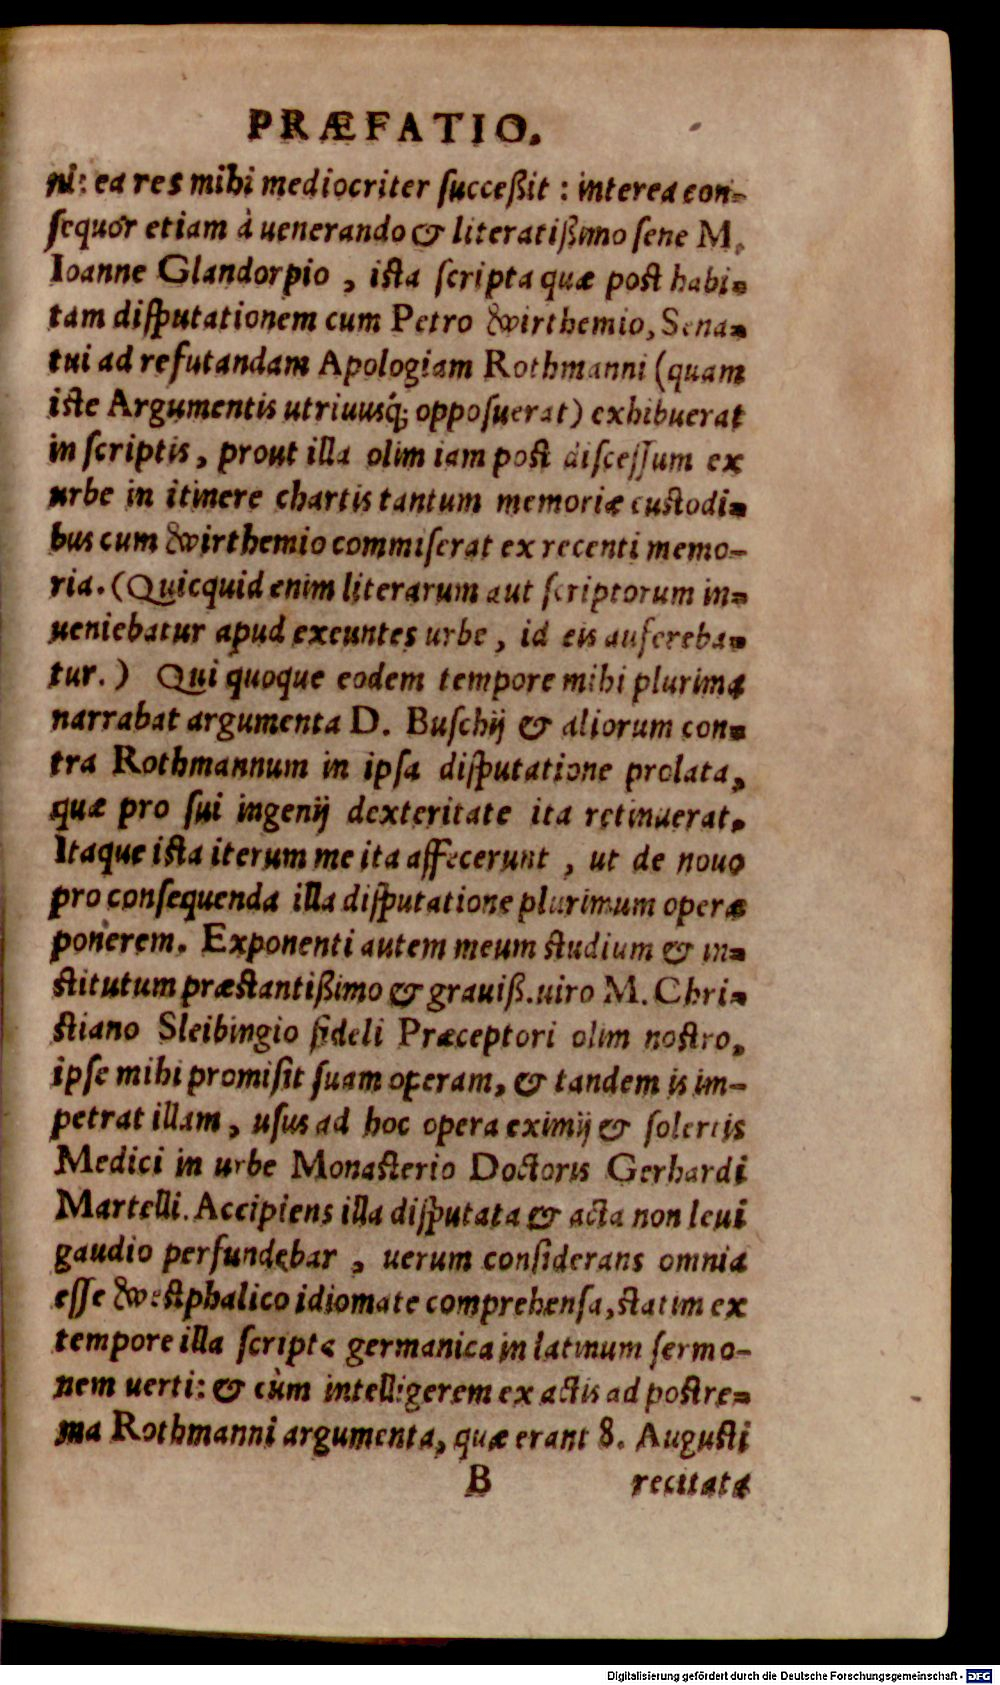 PRÆFATIO.
ni: ea res mihi mediocriter succeßit : interea con-
sequor etiam à uenerando & literatißimo sene M.
Ioanne Glandorpio , ista scripta quæ post habi-
tam disputationem cum Petro Wirthemio, Sena-
tui ad refutandam Apologiam Rothmanni (quam
iste Argumentis utriuusq́; opposuerat) exhibuerat
in scriptis , prout illa olim iam post discessum ex
urbe in itinere chartis tantum memoriæ custodi-
bus cum Wirthemio commiserat ex recenti memo-
ria. (Quicquid enim literarum aut scriptorum in-
ueniebatur apud exeuntes urbe , id eis aufereba-
tur. ) Qui quoque eodem tempore mihi plurima
narrabat argumenta D. Buschij & aliorum con-
tra Rothmannum in ipsa disputatione prolata,
quæ pro sui ingenij dexteritate ita retinuerat.
Itaque ista iterum me ita affecerunt , ut de nouo
pro consequenda illa disputatione plurimum operæ
ponerem. Exponenti autem meum studium & in-
stitutum præstantißimo & grauiß. uiro M. Chri-
stiano Sleibingio fideli Præceptori olim nostro,
ipse mihi promisit suam operam, & tandem is im-
petrat illam , usus ad hoc opera eximij & solertis
Medici in urbe Monasterio Doctoris Gerhardi
Martelli. Accipiens illa disputata & acta non leui
gaudio perfundebar , uerum considerans omnia
esse Westphalico idiomate comprehensa, statim ex
tempore illa scripta germanica in latinum sermo-
nem uerti: & cùm intelligerem ex actis ad postre-
ma Rothmanni argumenta, quæ erant 8. Augusti
B recitata
Digitalisierung gefördert durch die Deutsche Forschungsgemeinschaft - DFG